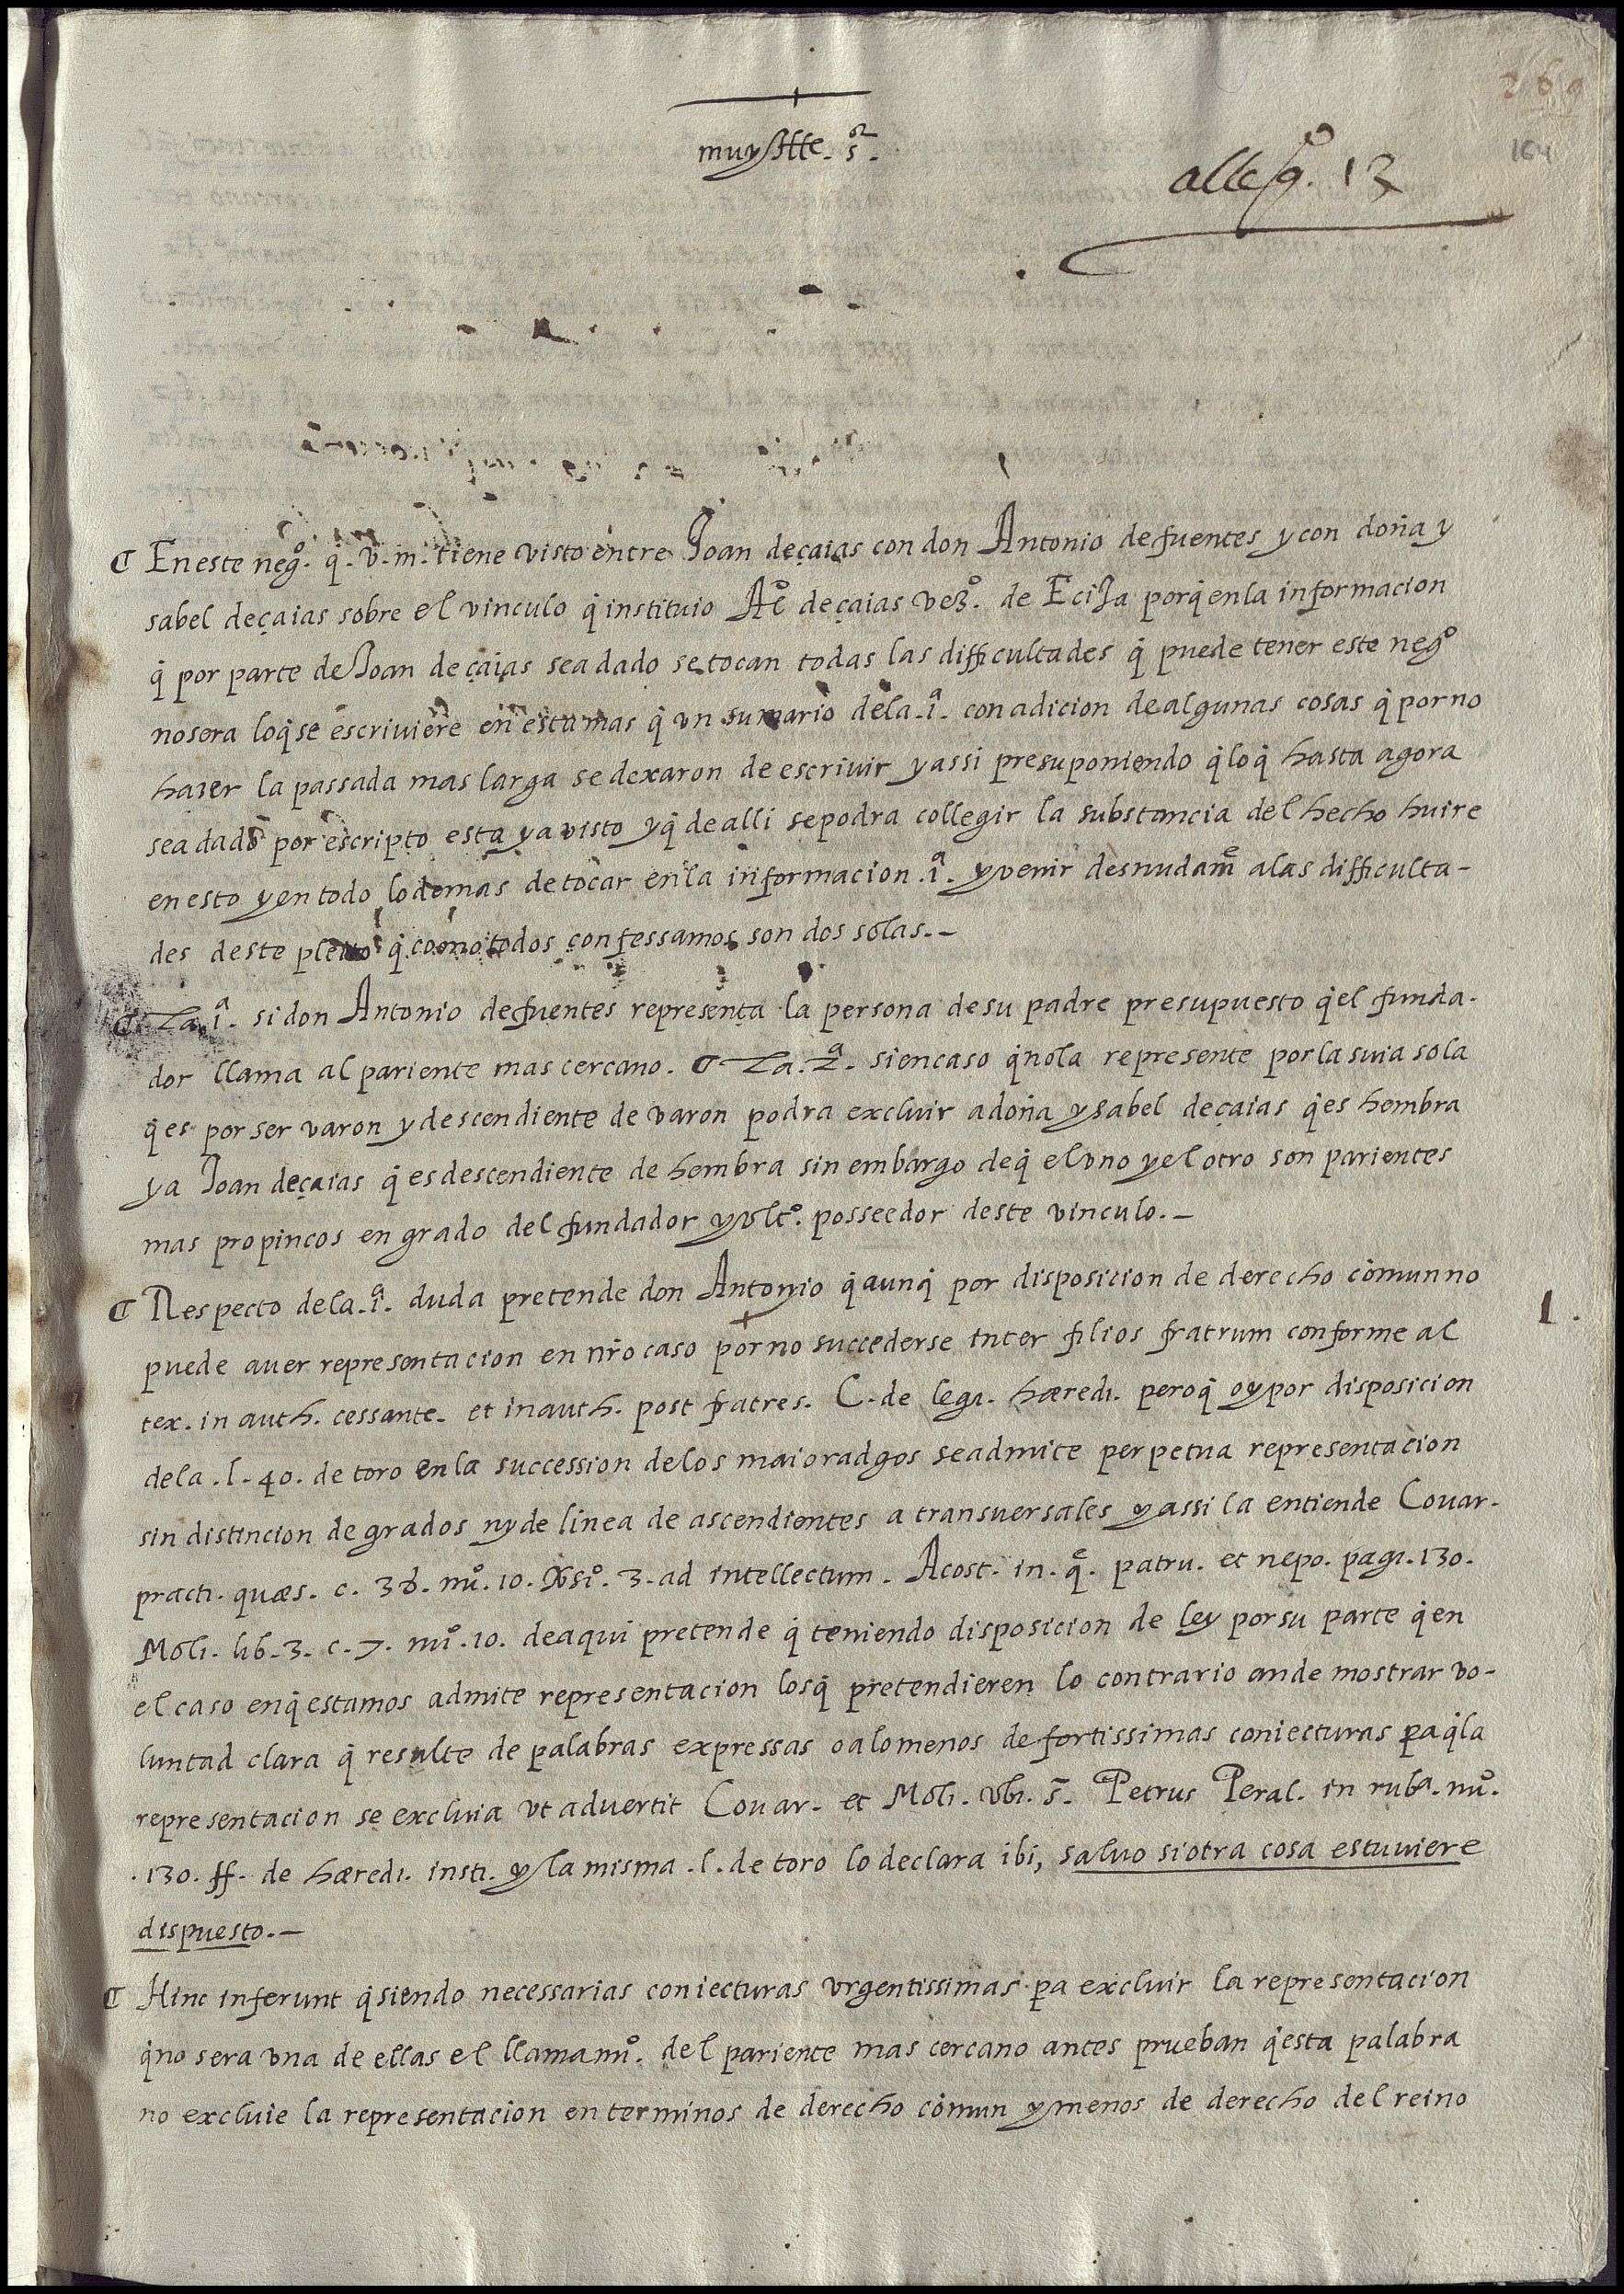 269
164
muy Ille. s.or
alleg.o 13
¶ En este neg.o q̃. v. m. tiene visto entre Joan de çaias con don Antonio de fuentes y con doña y
sabel de çaias sobre el vinculo q̃ instituio A.o de çaias vez.o de Ecija porq̃ en la informacion
q̃ por parte de Joan de çaias sea dado se tocan todas las difficultades q̃ puede tener este neg.o
no sera loq̃ se escriviere en esta mas q̃ vn sumario dela .1.a con adicion de algunas cosas q̃ por no
hazer la passada mas larga se dexaron de escrivir y assi presuponiendo q̃ loq̃ hasta agora
sea dado por escripto esta ya visto y q̃ de alli se podra collegir la substancia del hecho huire
en esto y en todo lo demas de tocar en la informacion .1.a y venir desnudam.e alas difficulta-
des deste pleito q̃ como todos confessamos son dos solas.-
¶ La .1.a si don Antonio de fuentes representa la persona de su padre presupuesto q̃ el funda-
dor llama al pariente mas cercano. ¶ La .2.a si en caso q̃ no la represente por la suia sola
q̃ es por ser varon y descendiente de varon podra excluir a doña ysabel de çaias q̃ es hembra
y a Joan de çaias q̃ es descendiente de hembra sin embargo de q̃ el vno y el otro son parientes
mas propincos en grado del fundador y vlt.o posseedor deste vinculo.-
¶ Respecto dela .1.a duda pretende don Antonio q̃ aunq̃ por disposicion de derecho comun no
1.
puede aver representacion en nr̃o caso por no succederse inter filios fratrum conforme al
tex. in auth. cessante. et in auth. post fratres. C. de legi. hæredi. pero q̃ oy por disposicion
dela .l. 40. de toro en la succession delos maioradgos se admite perpetua representacion
sin distincion de grados ny de linea de ascendientes a transversales y assi la entiende Covar.
practi. quæs. c. 38. nu.o 10. Xsi.o 3. ad intellectum. Acost. in. q.e patru. et nepo. pagi. 130.
Moli. lib. 3. c. 7. nu.o 10. de aqui pretende q̃ teniendo disposicion de ley por su parte q̃ en
el caso en q̃ estamos admite representacion los q̃ pretendieren lo contrario an de mostrar vo-
luntad clara q̃ resulte de palabras expressas o alomenos de fortissimas coniecturas pa q̃ la
representacion se excluia vt advertit Covar. et Moli. vbi. s̃. Petrus Peral. in rub.a nu.o
.130. ff. de hæredi. insti. y la misma .l. de toro lo declara ibi, salvo si otra cosa estuviere
dispuesto.-
¶ Hinc inferunt q̃ siendo necessarias coniecturas vrgentissimas pa excluir la representacion
q̃ no sera vna de ellas el llamam.o del pariente mas cercano antes prueban q̃ esta palabra
no excluie la representacion en terminos de derecho comun y menos de derecho del reino